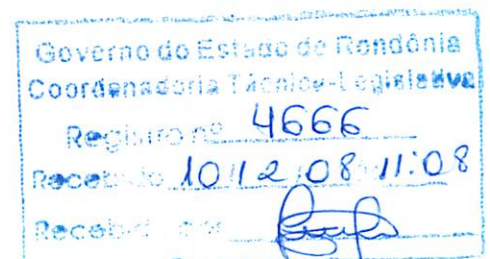 Governo do Estado de Rondônia
Coordenadoria Técnico-Legislativa
Registro nº 4666
Recebido 10/12/08 11:08
Recebido por